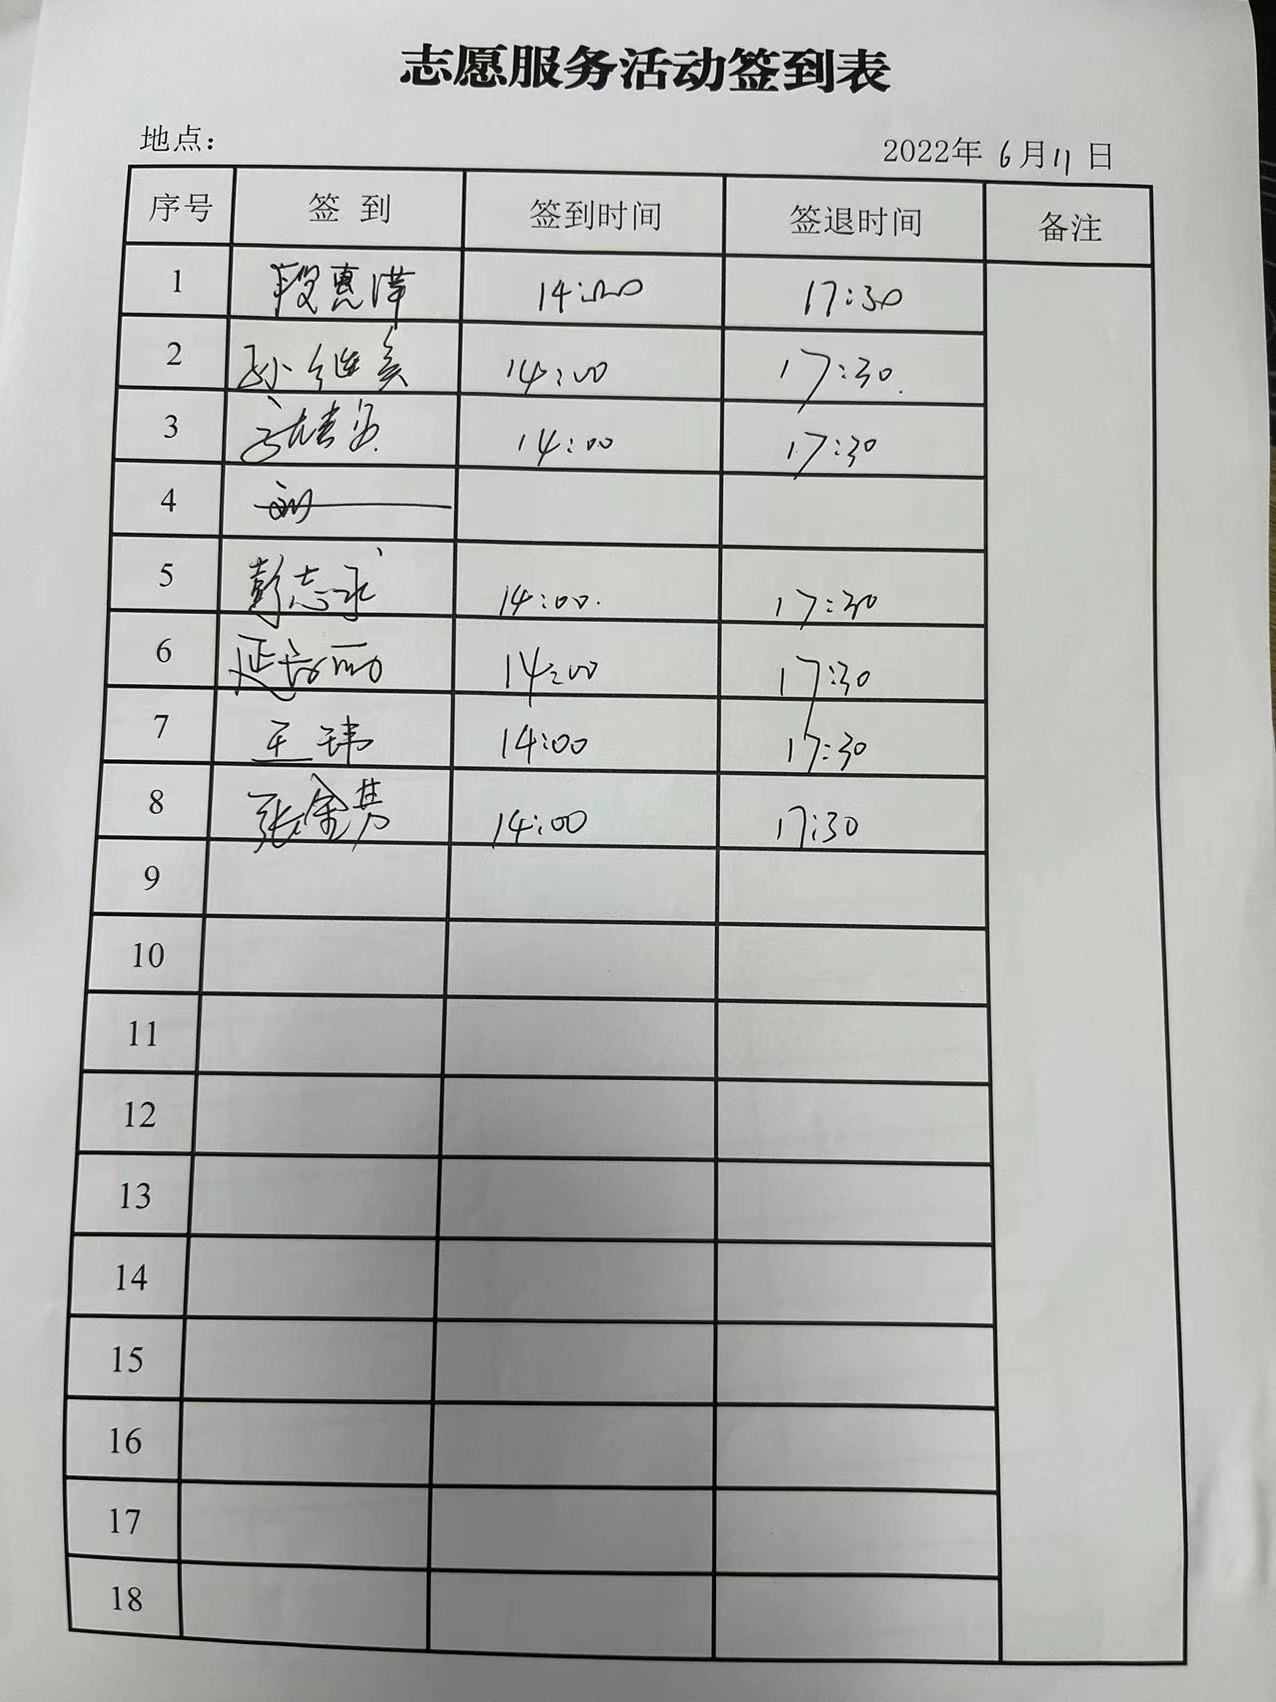 志愿服务活动签到表
地点： 2022年 6月11日
序号 签到 签到时间 签退时间 备注
1 段惠萍 14:00 17:30
2 孙继美 14:00 17:30.
3 14:00 17:30
4 刘
5 彭志永 14:00. 17:30
6 延长丽 14:00 17:30
7 王玮 14:00 17:30
8 张金苗 14:00 17:30
9
10
11
12
13
14
15
16
17
18